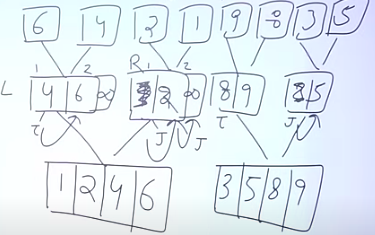 6 4 2 1 9 8 3 5
1 2 R 1 2
L 4 6 ∞ 2 ∞ 8 9 3 5
i j j j i j
1 2 4 6 3 5 8 9